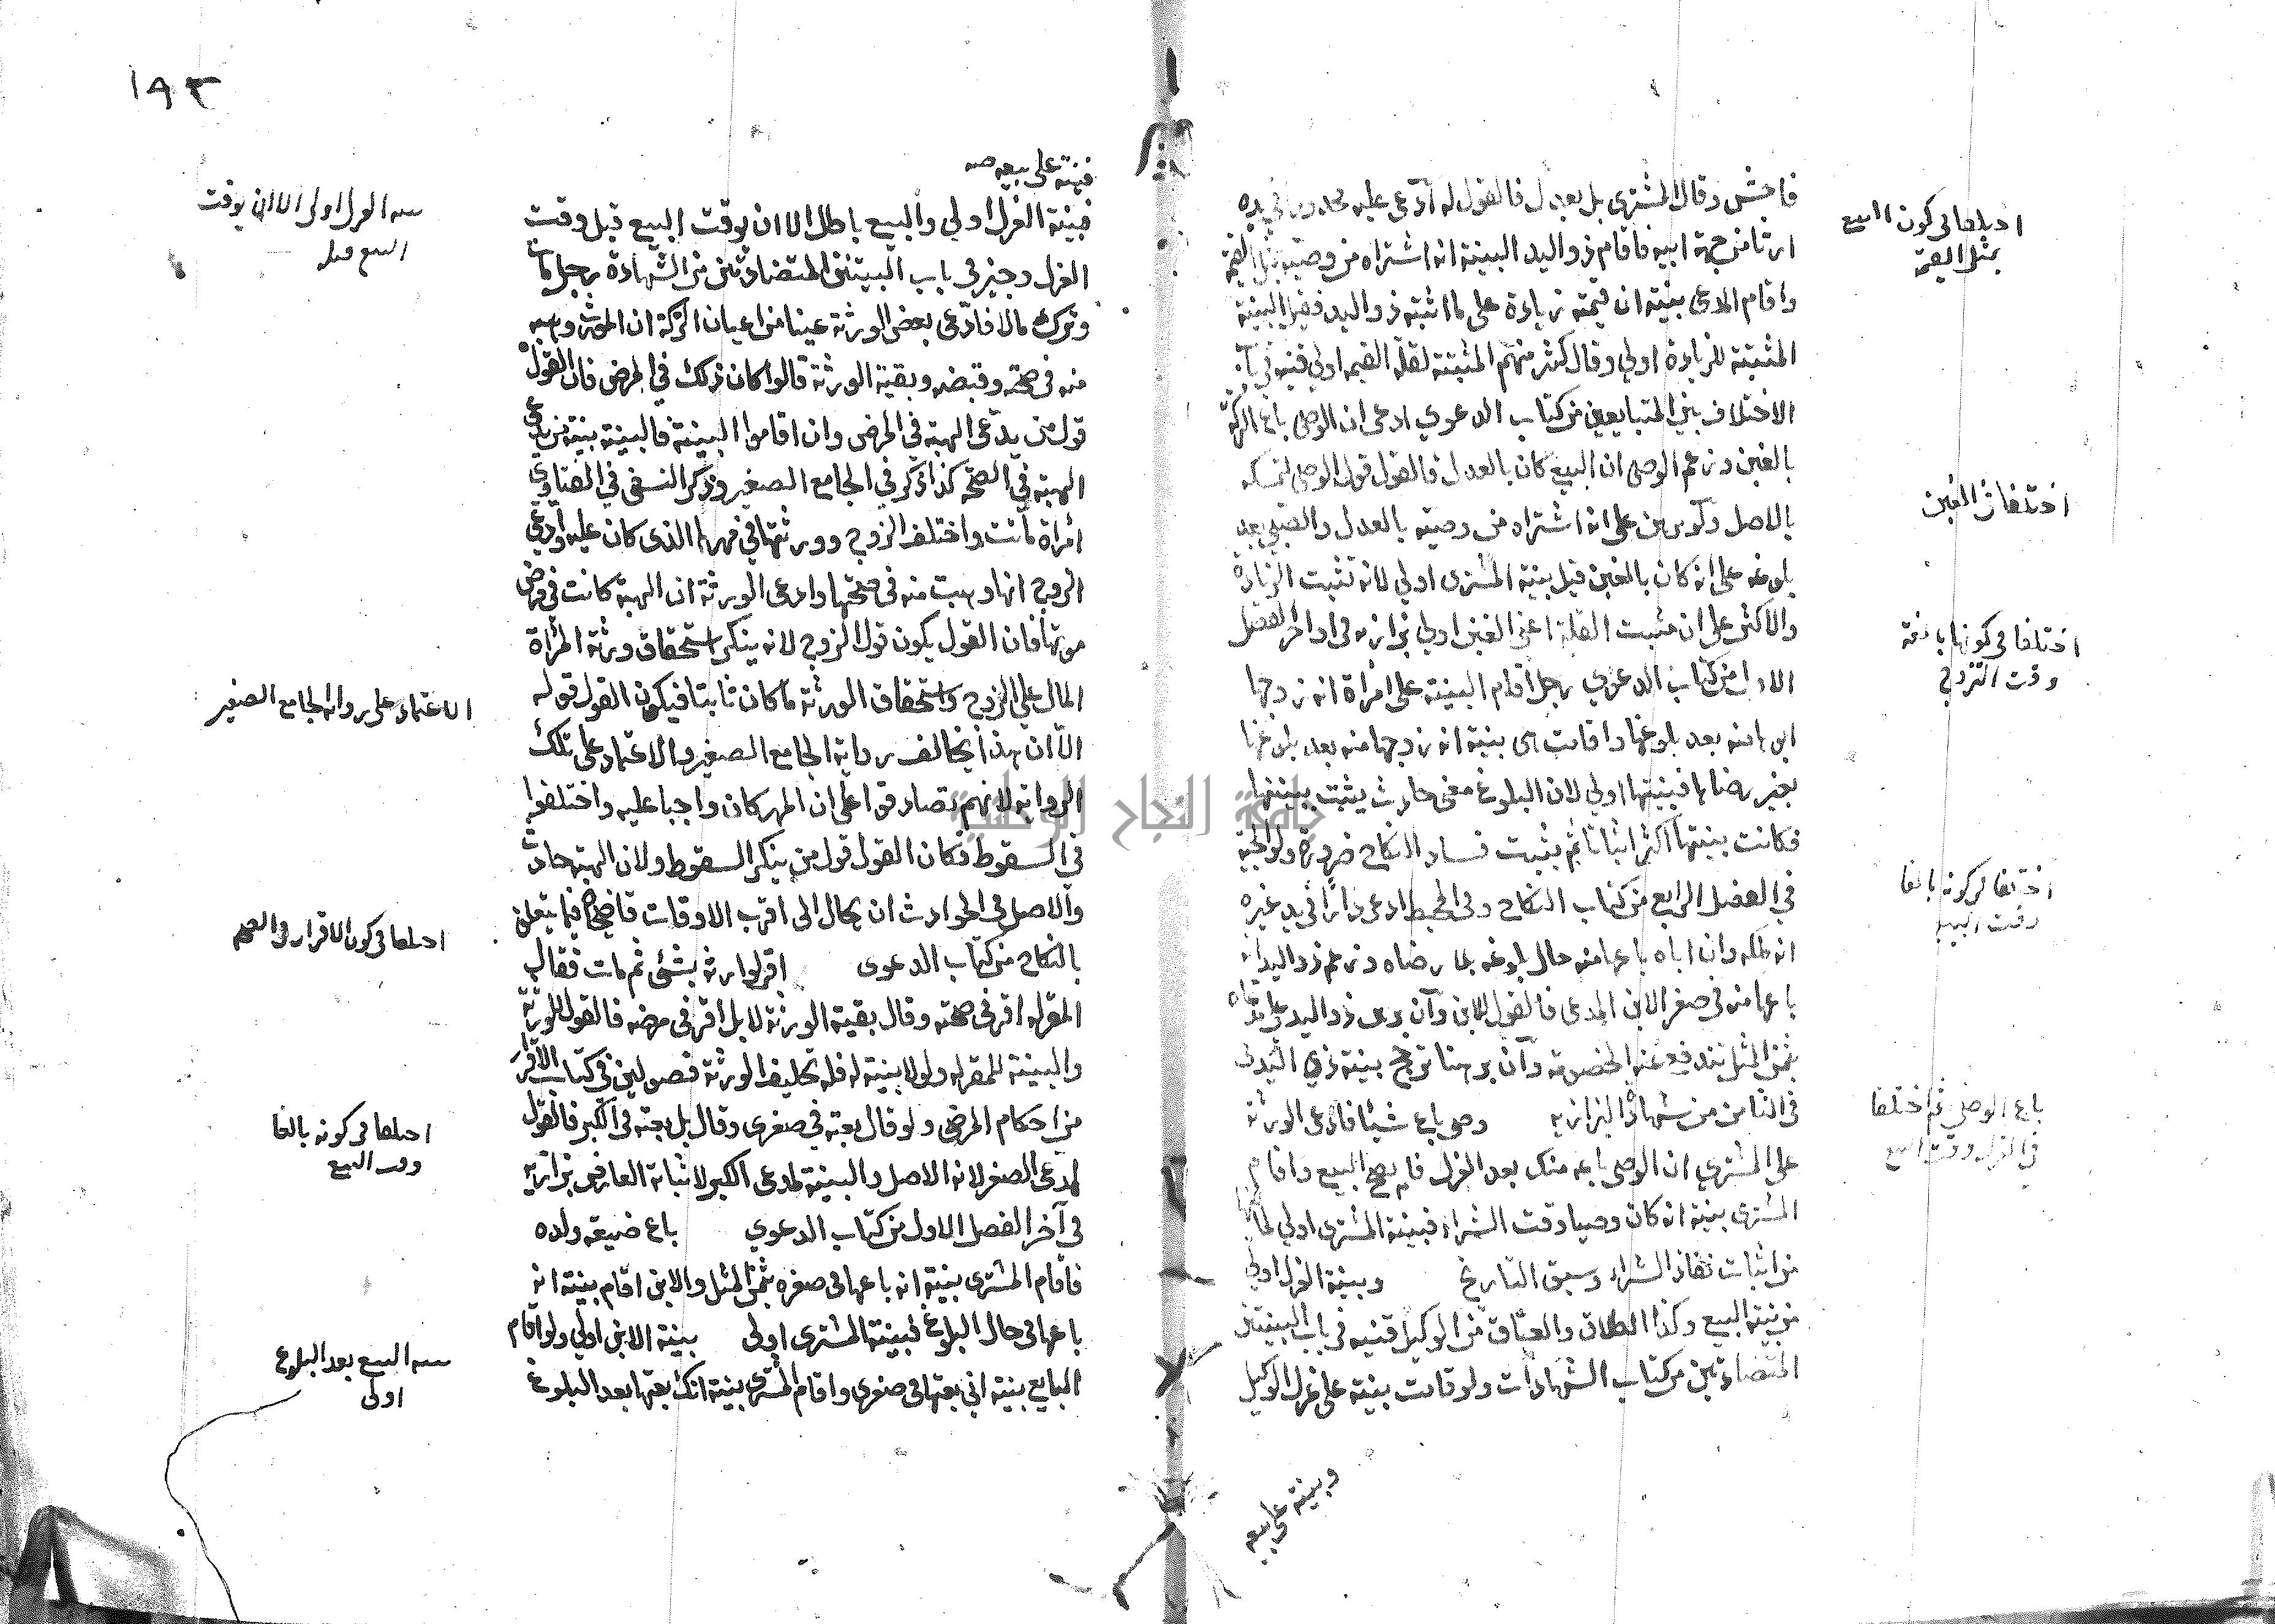 فاحش وقال المشتري بل بعدل فالقول له ادعى عليه محدودا في يده
ارثا من جهة ابيه فاقام ذو اليد البينة انه اشتراه من وصيه بمثل القيمة
واقام المدعي بينة ان قيمته زيادة على ما اثبته ذو اليد فقيل البينة
المثبتة للزيادة اولي وقال كثر منهم المثبتة لقلة القيمه اولي قنيه في باب
الاختلاف بين المتبايعين من كتاب الدعوي ادعى ان الوصي باع التركة
بالغبن وزعم الوصي ان البيع كان بالعدل فالقول قول الوصي لتمسكه
بالاصل ولو برهن على انه اشتراه من وصيه بالعدل والصبي بعد
بلوغه على انه كان بالغبن قيل بينة المشترى اولي لانه تثبت الزيادة
والاكثر على ان مثبت القلة اعني الغبن اولي بزازيه في اواخر الفصل
الاول من كتاب الدعوي رجل اقام البينة على امرأة انه زوجها
ابوها منه بعد بلوغها واقامت هي بينة انه زوجها منه بعد بلوغها
بغير رضاها فبينتها اولي لان البلوغ معنى حادث يثبت ببينتها
فكانت بينتها اكثر اثباتا ثم يثبت فساد النكاح ضرورة ولوالجية
في الفصل الرابع من كتاب النكاح وفى المحيط ادعى دارا في يد غيره
انه ملكه وان اباه باعها منه حال بلوغه بلا رضاه وزعم ذو اليد انه
باعها منه في صغر الابن المدعى فالقول للابن وان برهن ذو اليد على
بثمن المثل تندفع عنه الخصومة وان برهنا ترجح بينة ذي اليد
في الثامن من شهادات البزازيه وصى باع شيئا فادعى الورثة
على المشتري ان الوصي باعه منك بعد العزل فلم يصح البيع واقام
المشترى بينة انه كان وصيا وقت الشراء فبينة المشترى اولي لما فيها
من اثبات نفاذ الشراء وسبق التاريخ وبينة العزل اولي
من بينة البيع وكذا الطلاق والعتاق من الوكيل قنيه في باب البينتين
المتضادتين من كتاب الشهادات ولو قامت بينة على عزل الوكيل
وبينة على بيعه
اختلفا في كون البيع
بمثل القيمة
اختلفا في الغبن
اختلفا في كونها بالغة
وقت التزوج
اختلفا في كونه بالغا
وقت البيع
باع الوصي ثم اختلفا
في العزل وقت البيع
١٩٣
فبينة على بيعه صح
فبينة العزل اولي والبيع باطل الا ان يوقت البيع قبل وقت
العزل وجيز في باب البينتين المتضادتين من الشهادة رجل مات
وترك مالا فادعى بعض الورثة عينا من اعيان التركة ان المورث وهبه
منه في صحته وقبضه وبقية الورثة قالوا كان ذلك في المرض فان القول
قول من يدعى الهبة في المرض وان اقاموا البينة فالبينة بينة من يدعي
الهبة في الصحة كذا ذكر في الجامع الصغير وذكر النسفى في الفتاوي
امرأة ماتت واختلف الزوج وورثتها في مهرها الذى كان عليه وادعي
الزوج انها وهبت منه في صحتها وادعى الورثة ان الهبة كانت في مرض
موتها فان القول يكون قول الزوج لانه ينكر استحقاق ورثة المرأة
المال على الزوج واستحقاق الورثة ما كان ثابتا فيكون القول قوله
الا ان هذا يخالف رواية الجامع الصغير والاعتماد على تلك
الرواية لانهم تصادقوا على ان المهر كان واجبا عليه واختلفوا
في السقوط فكان القول قول من ينكر السقوط ولان الهبة حادث
والاصل في الحوادث ان يحال الى اقرب الاوقات قاضيخان فيما يتعلق
بالنكاح من كتاب الدعوى اقر لوارثه بشئ ثم مات فقال
المقرله اقر في صحته وقال بقية الورثة لا بل اقر في مرضه فالقول للورثة
والبينة للمقرله ولو لا بينة له فله تحليف الورثة فصولين في كتاب الاقرار
من احكام المرضى ولو قال بعته في صغرى وقال بل بعته في الكبر فالقول
لمدعى الصغر لانه الاصل والبينة لمدعى الكبر لاثباته العارض بزازيه
في آخر الفصل الاول من كتاب الدعوي باع ضيعة ولده
فاقام المشترى بينة انه باعها في صغره بثمن المثل والابن اقام بينة انه
باعها في حال البلوغ فبينة المشترى اولى بينة الابن اولي ولو اقام
البايع بينة اني بعتها في صغرى واقام المشترى بينة انك بعتها بعد البلوغ
بينة العزل اولى الا ان يوقت
البيع قبله
الاعتماد على رواية الجامع الصغير
اختلفا في كون الاقرار في الصحة
اختلفا في كونه بالغا
وقت البيع
بينة البيع بعد البلوغ
اولى
جامعة النجاح الوطنية